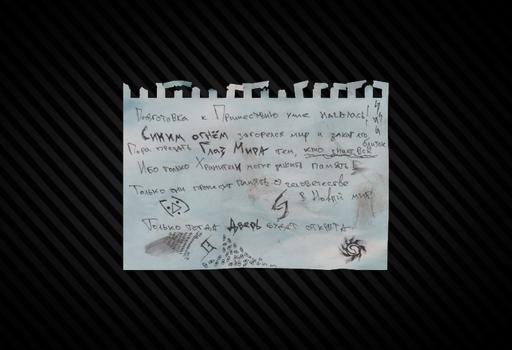 Подготовка к Пришествию уже началась!
Синим огнём загорелся мир и закат его близок
Пора предать Глаз Мира тем, кто знает всё
Ибо только Хранители могут хранить память!
Только они пронесут память о человечестве
в Новый мир
Только тогда Дверь будет открыта